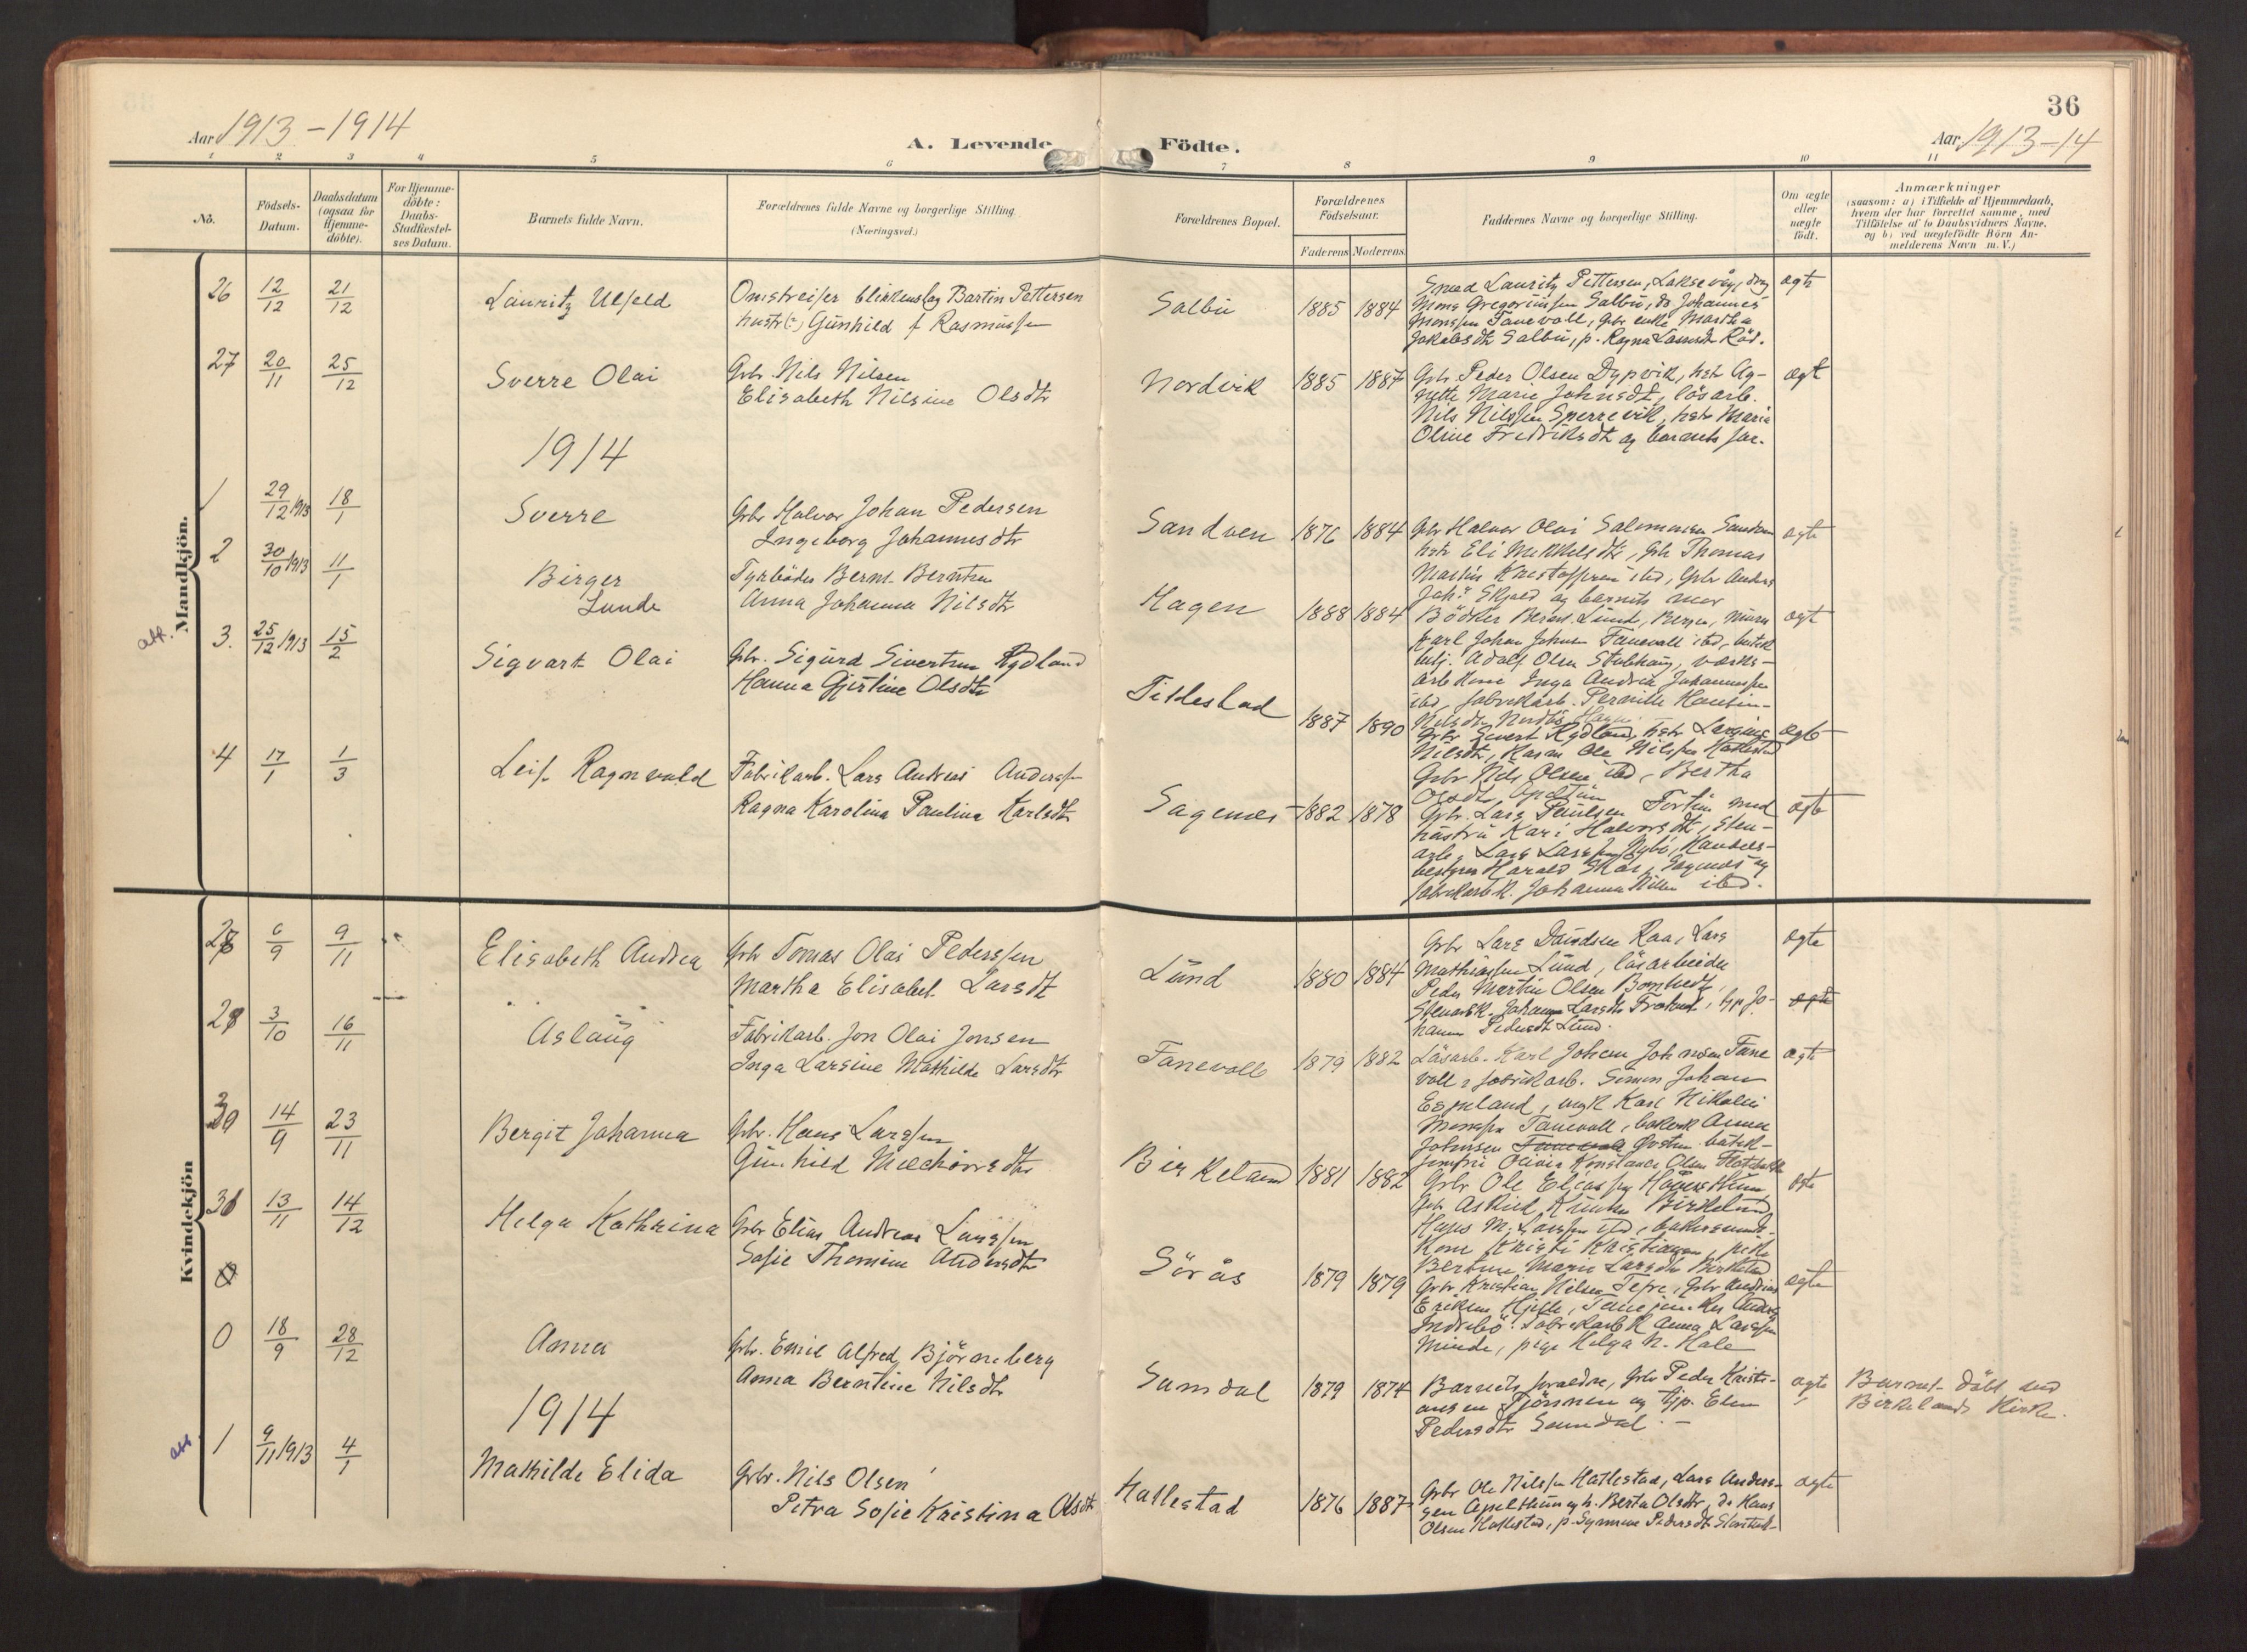 36
Aar 1913-1914
A. Levende
Födte.
Aar 1913-14
1 2 3 4 5 6 7 8 9 10 11
No.
Födsels-Datum.
Daabsdatum (ogsaa for Hjemme-döbte).
For Hjemme-döbte: Daabs-Stadfæstel-ses Datum.
Barnets fulde Navn.
Forældrenes fulde Navne og borgerlige Stilling.
(Næringsvei.)
Forældrenes Bopæl.
Forældrenes Födselsaar.
Faderens Moderens
Faddernes Navne og borgerlige Stilling.
Om ægte eller uægte födt.
Anmærkninger
(saasom: a) i Tilfælde af Hjemmedaab,
hvem der har forrettet samme, med
Tilföielse af to Daabsvidners Navne,
og b) ved uægtefödte Börn An-
melderens Navn m. V.)
Mandkjön.
26 12/12 21/12 Lauritz Ulfeld Omstreifer blikkenslag Bartin Pettersen
hustr(:) Gunhild f Rasmussen
Salbu 1885 1884 Smed Lauritz Pettersen, Laksevåg, drg
Mons Gregoriussen Salbu, do Johannes
Monssen Tanevoll, gbr enke Martha
Jakobsdtr Salbu, p. Ragna Larsdtr Röd.
ægte
27 20/11 25/12 Sverre Olai Gbr. Nils Nilsen
Elisabeth Nilsine Olsdtr
Nordvik 1885 1887 Gbr Peder Olsen Dypvik, hstr Ag-
nette Marie Johnsdtr, lösarb.
Nils Nilssen Sperrevik, hstr Maria
Oline Fredriksdtr og barnets far.
ægt
1914
1 29/12 1913 18/1 Sverre Gbr Halvor Johan Pedersen
Ingeborg Johannesdtr
Sandven 1876 1884 Gbr Halvor Olai Salomonsen Sandven
hstr Eli Mikkelsdtr, Gbr Thomas
Martin Kristoffersen ibd, Gbr Anders
Johs Skjold og barnets mor
ægte
2 30/10 1913 11/1 Birger
Lunde
Fyrböder Bernt Berntsen
Anna Johanna Nilsdtr
Hagen 1888 1884 Bödker Lund, Bergen,
Karl Johan Johnsen Tanevoll ibd, butik
betj. Adolf Olsen Stubhaug, værks-
arb Kone Inga Andrea Johannessen
ibd, fabrikarb. Pernille
Nilsdtr
ægt
atk.
3. 25/12 1913 15/2 Sigvart Olai Gbr. Sigurd Sivertsen Rydland
Hanna Gjertine Olsdtr
Titlestad 1887 1890 Gbr Sivert Rydland, hstr
Nilsdtr, Ole Nilssen Hatlestad
Gbr Nils Olsen ibd, Bertha
Olsdtr
ægte
4 17/1 1/3 Leif Ragnvald Fabrikarb. Lars Andreas Anderssen
Ragna Karolina Paulina Karlsdtr
Sagenes 1882 1878 Gbr. Lars Paulsen med
hustru Kari Halvorsdtr, Sten-
arb. Lars Larssen Nybö, Handels-
bestyrer Harald Skår, Sagenes og
fabrikarb k. Johanna Nilsen ibd.
ægte
Kvindekjön
27 6/9 9/11 Elisabeth Andrea Gbr Tomas Olai Pederssen
Martha Elisabet Larsdtr
Lund 1880 1884 Gbr Lars Davidsen Raa, Lars
Mathiassen Lund, lösarbeider
Peder Martin Olsen
Stenarb k. Johanna Larsdtr, tjp. Jo-
hanna Pedersdtr Lund.
ægte
28 3/10 16/11 Aslaug Fabrikarb. Jon Olai Jonsen
Inga Larsine Mathilde Larsdtr
Tanevoll 1879 1882 Lösarb. Karl Johan Johnsen Tane
voll, fabrikarb. Simon Johan
Espeland, ungk Karl Nikolai
Monssen Tanevoll, bakerk Anna
Johnsen butik-
jomfru Olivia Konstance Olsen
ægte
30 14/9 23/11 Bergit Johanna Gbr. Hans Larssen
Gunhild Melchiorsdtr
Birkeland 1881 1882 Gbr Ole Eliassen
Gbr Askild Knutsen Birkeland
Hans M. Larssen ibd, bakersvends
Kone Kristi Kristiansen, pike
Bertine Marie Larsdtr Birkeland
ægte
31 13/11 14/12 Helga Kathrina Gbr Elias Andreas Larssen
Sofie Thomine Andersdtr
Sörås 1879 1879 Gbr Kristian Nilsen, Gbr Andreas
Eriksen, Anders
Indrebö. Fabrikarb k Anna Larssen
Minde, pige Helga N. Hole
ægte
0 18/9 28/12 Anna Gbr. Emil Alfred Björneberg
Anna Berntine Nilsdtr
Samdal 1879 1874 Barnets foreldre, Gbr Peder Kristi-
ansen og tjp. Elen
Pedersdtr Samdal.
ægte Barnet döbt ved
Birkelands Kirke.
1914
1 9/11 1913 4/1 Mathilde Elida Gbr. Nils Olsen
Petra Sofie Kristina Olsdtr
Hatlestad 1876 1887 Gbr Ole Nilssen Hatlestad, Lars Anders-
sen Apeltun og h. Berta Olsdtr, do Hans
Olsen Hatlestad, p. Synneve Pedersdtr
ægte